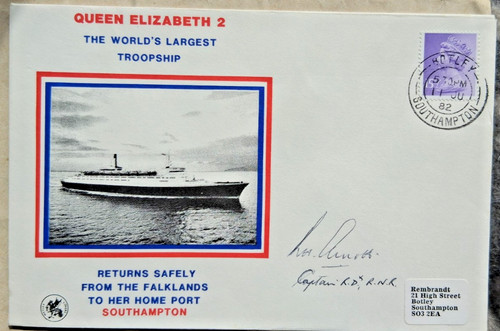 QUEEN ELIZABETH 2
THE WORLD'S LARGEST
TROOPSHIP
BOTLEY
5-30PM
11 JU
82
SOUTHAMPTON
RETURNS SAFELY
FROM THE FALKLANDS
TO HER HOME PORT
SOUTHAMPTON
Captain R.D., R.N.R.
Rembrandt
21 High Street
Botley
Southampton
SO3 2EA